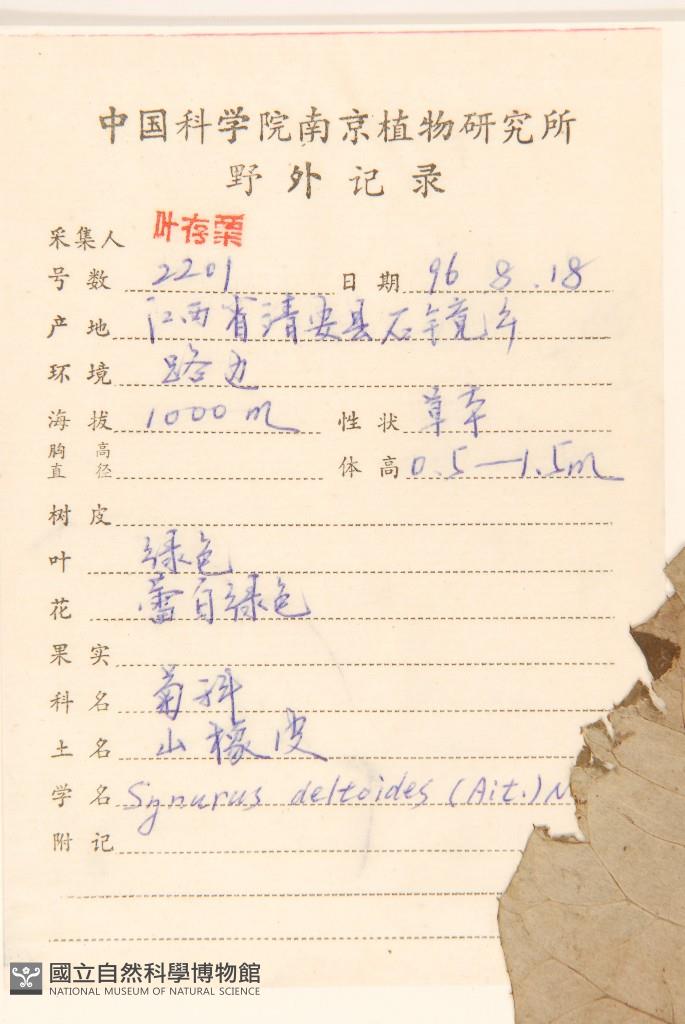 中国科学院南京植物研究所
野外记录
采集人 叶存粟
号数 2201 日期 96 8.18
产地 江西省靖安县石镜乡
环境 路边
海拔 1000m 性状 草本
胸高直径 体高 0.5—1.5m
树皮
叶 绿色
花 蕾白绿色
果实
科名 菊科
土名 山橡皮
学名 Synurus deltoides (Ait.) N
附记
國立自然科學博物館
NATIONAL MUSEUM OF NATURAL SCIENCE